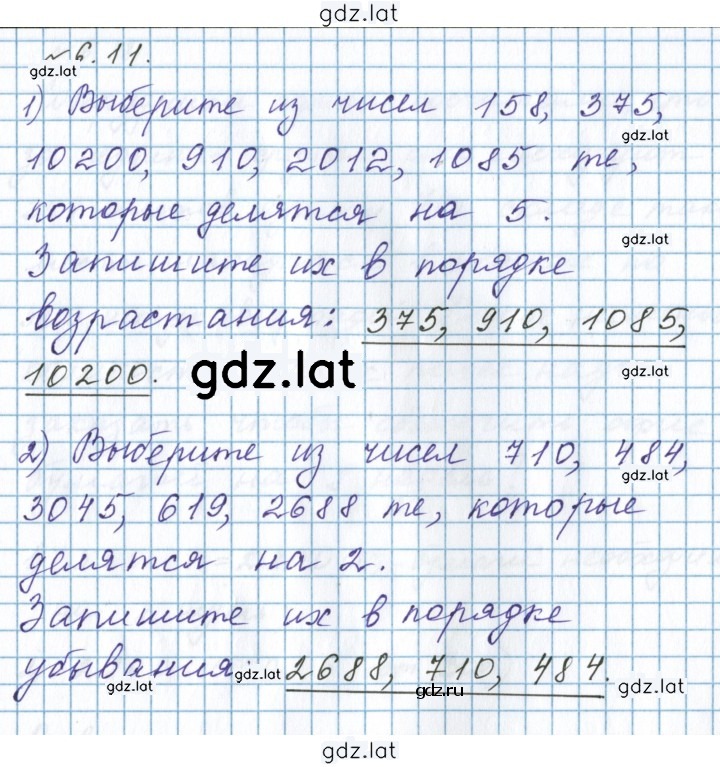 gdz.lat
№ 6.11.
gdz.lat
1) Выберите из чисел 158, 375,
gdz.lat
10200, 910, 2012, 1085 те,
которые делятся на 5.
gdz.lat
Запишите их в порядке
возрастания: 375, 910, 1085,
10200. gdz.lat gdz.lat
2) Выберите из чисел 710, 484,
gdz.lat
3045, 619, 2688 те, которые
делятся на 2.
Запишите их в порядке
убывания: 2688, 710, 484.
gdz.lat gdz.ru gdz.lat
gdz.lat